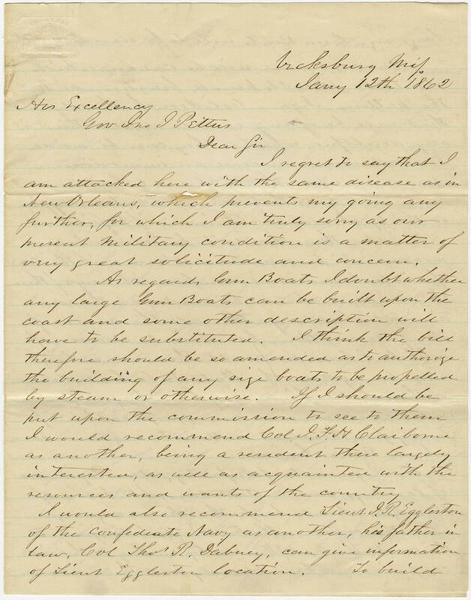 Vicksburg Mif
Jany 12th 1862
His Excellency
Gov Jno J Pettus
Dear Sir
I regret to say that I
am attacked here with the same disease as in
New Orleans, which prevents my going any
further, for which I am truly sorry as our
present Military condition is a matter of
very great solicitude and concern.
As regards Gun Boats, I doubt whether
any large Gun Boats can be built upon the
coast and some other description will
have to be substituted. I think the bill
therefore should be so amended as to authorize
the building of any size boats to be propelled
by steam or otherwise. If I should be
put upon the commission to see to them
I would recommend Col J. F. H Claiborne
as another, being a resident there largely
interested, as well as acquainted with the
resources and wants of the country
I would also recommend Lieut J. R. Eggleston
of the Confederate Navy as another, his father in
law, Col Thos R. Dabney, can give information
of Lieut Eggleston location. To build